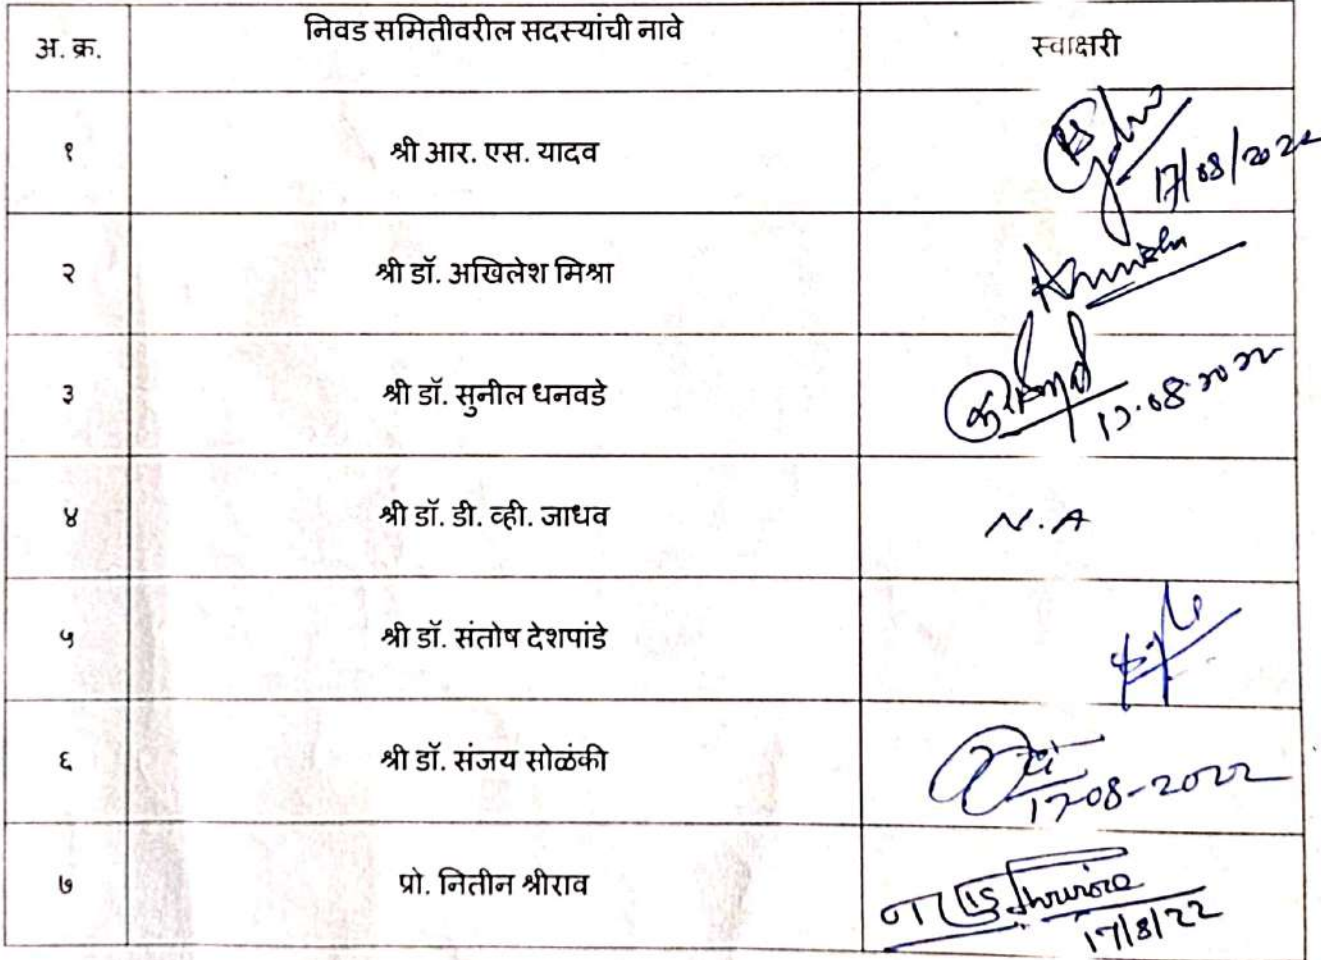 अ. क्र. निवड समितीवरील सदस्यांची नावे स्वाक्षरी
१ श्री आर. एस. यादव 17/08/2022
२ श्री डॉ. अखिलेश मिश्रा
३ श्री डॉ. सुनील धनवडे 17.08.2022
४ श्री डॉ. डी. व्ही. जाधव N.A
५ श्री डॉ. संतोष देशपांडे
६ श्री डॉ. संजय सोळंकी 17-08-2022
७ प्रो. नितीन श्रीराव 17/8/22